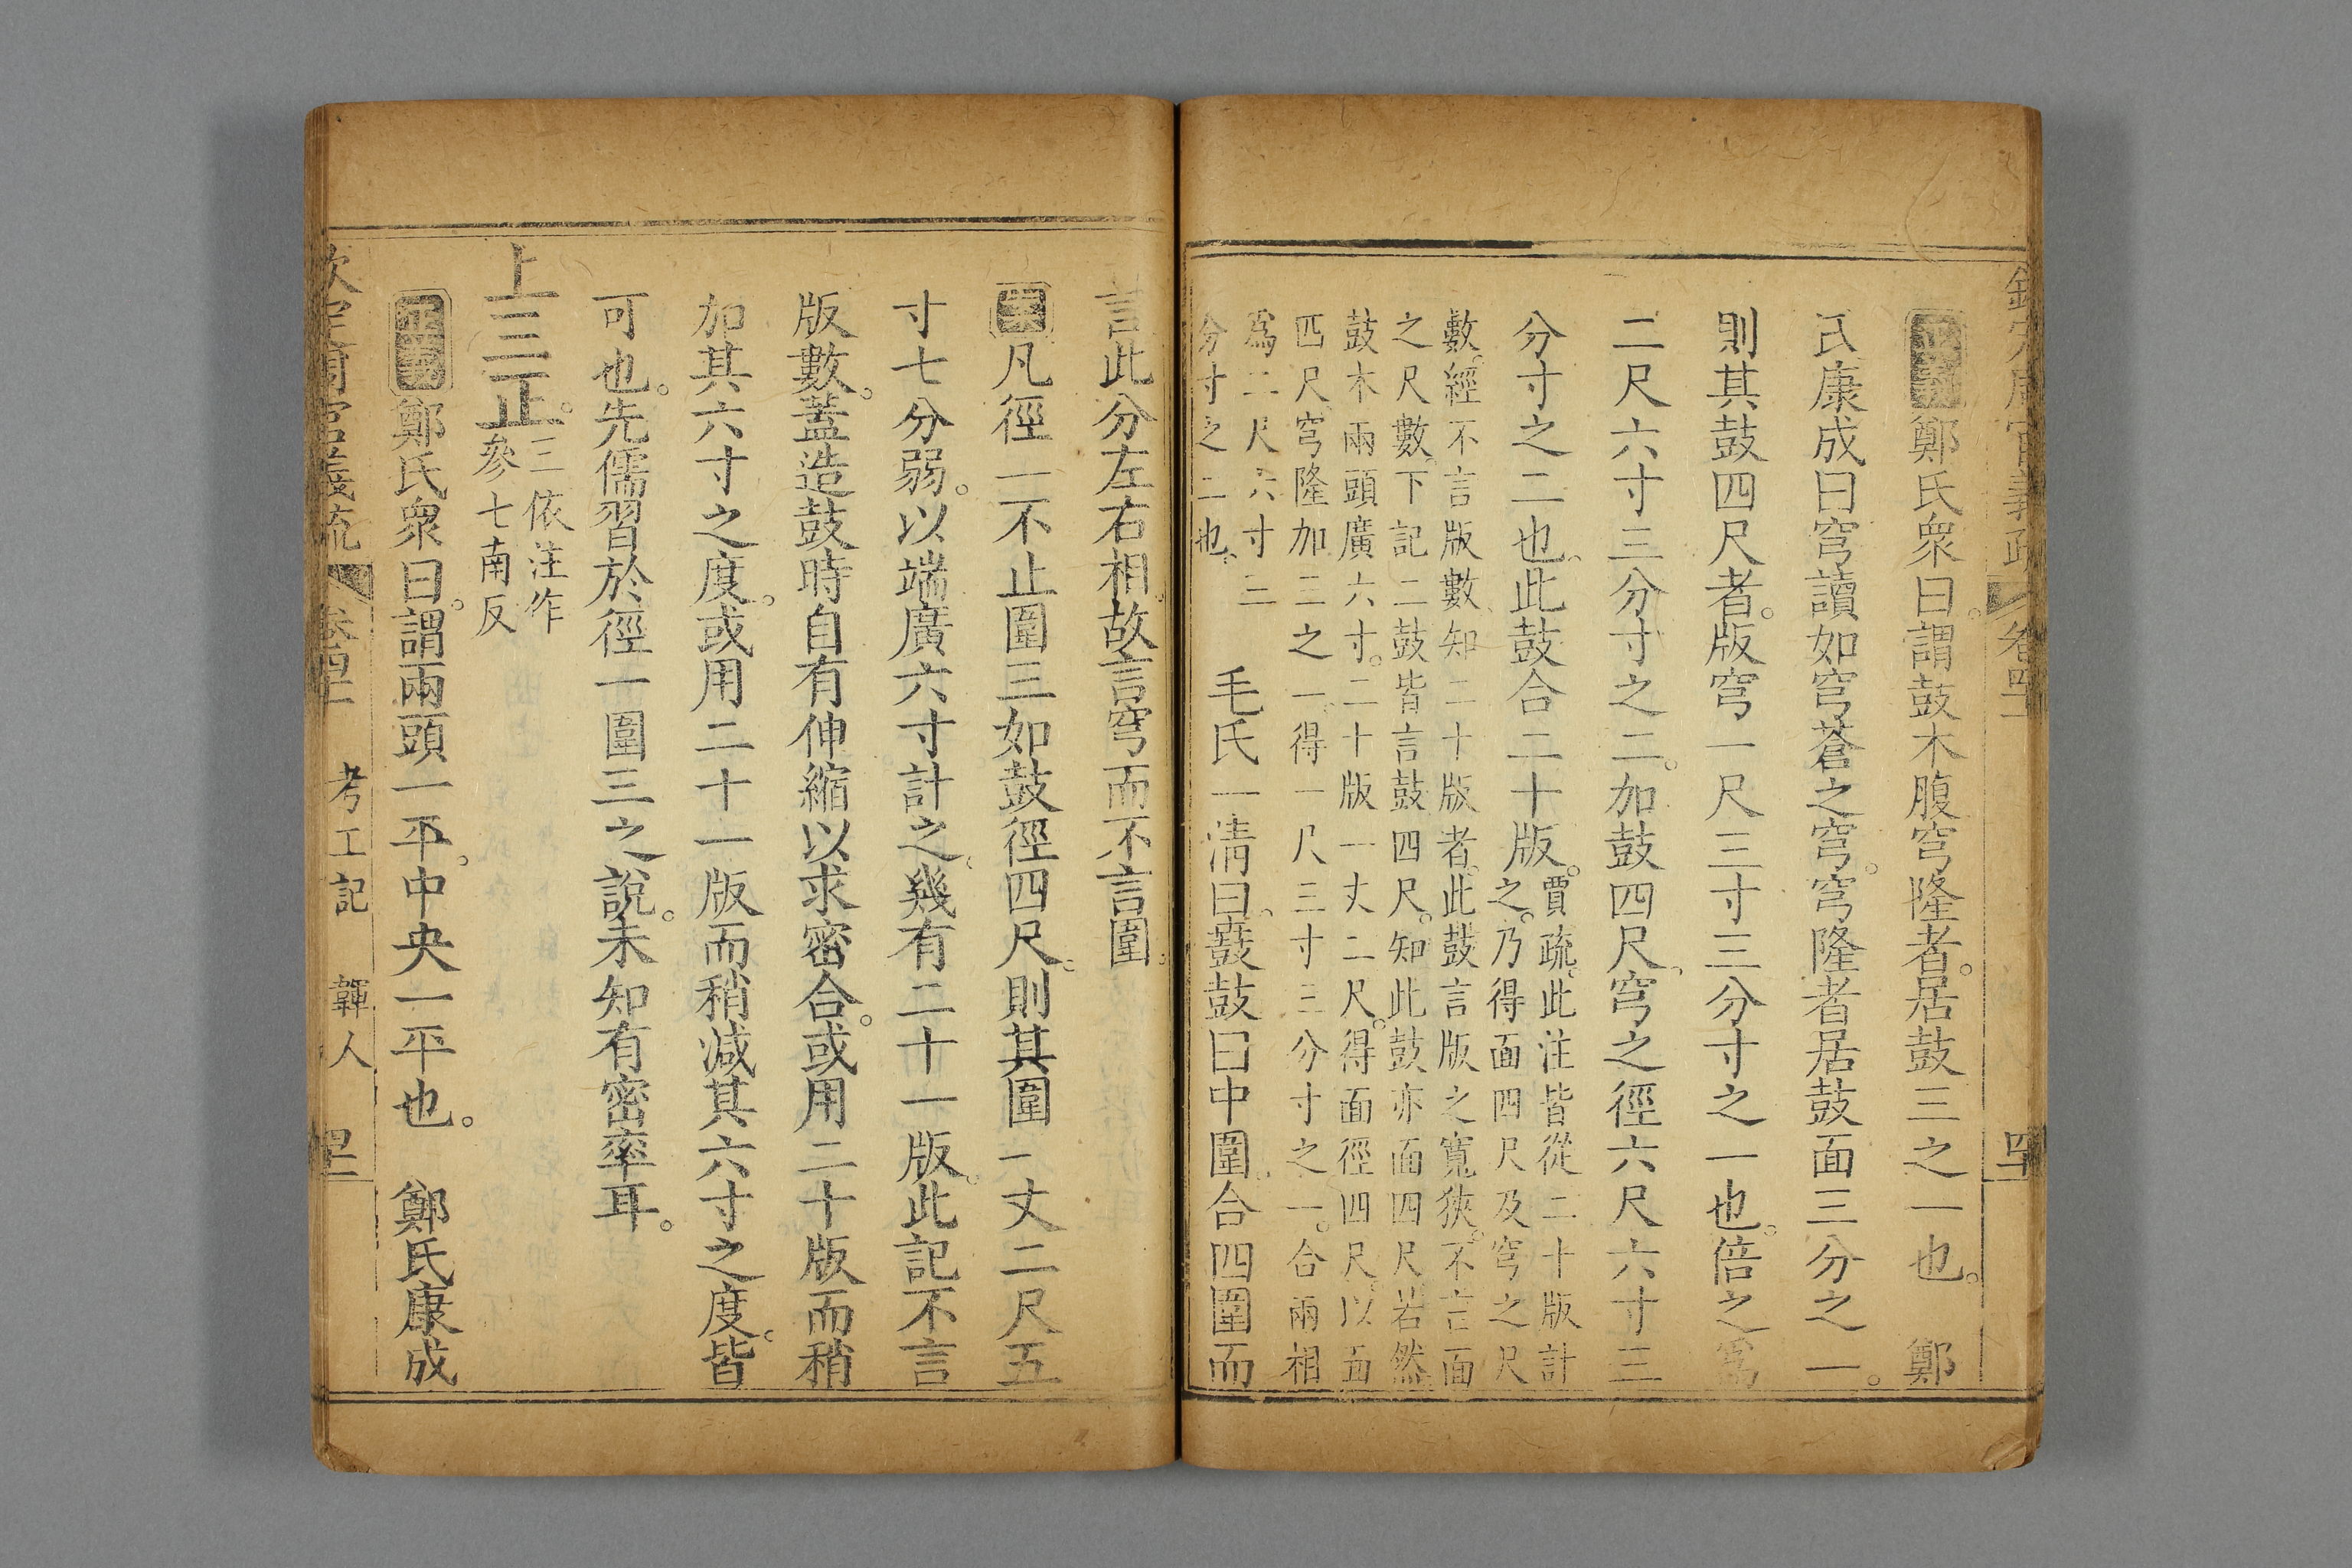 欽定周官義疏 卷四十二 四十一
正義 鄭氏衆曰謂鼓木腹穹隆者居鼓三之一也 鄭
氏康成曰穹讀如穹蒼之穹穹隆者居鼓面三分之一
則其鼓四尺者版穹一尺三寸三分寸之一也倍之爲
二尺六寸三分寸之二加鼓四尺穹之徑六尺六寸三
分寸之二也此鼓合二十版
賈疏此注皆從二十版計
之乃得面四尺及穹之尺
數經不言版數知二十版者此鼓言版之寬狹不言面
之尺數下記二鼓皆言鼓四尺知此鼓亦面四尺若然
鼓木兩頭廣六寸二十版一丈二尺得面徑四尺以面
四尺穹隆加三之一得一尺三寸三分寸之一合兩相
爲二尺六寸三
分寸之二也
毛氏一淸曰鼖鼓曰中圍合四圍而
言此分左右相故言穹而不言圍
案凡徑一不止圍三如鼓徑四尺則其圍一丈二尺五
寸七分弱以端廣六寸計之幾有二十一版此記不言
版數蓋造鼓時自有伸縮以求密合或用二十版而稍
加其六寸之度或用二十一版而稍減其六寸之度皆
可也先儒習於徑一圍三之說未知有密率耳
上三正
三依注作
參七南反
正義 鄭氏衆曰謂兩頭一平中央一平也 鄭氏康成
欽定周官義疏 卷四十二 考工記 韗人 四十二